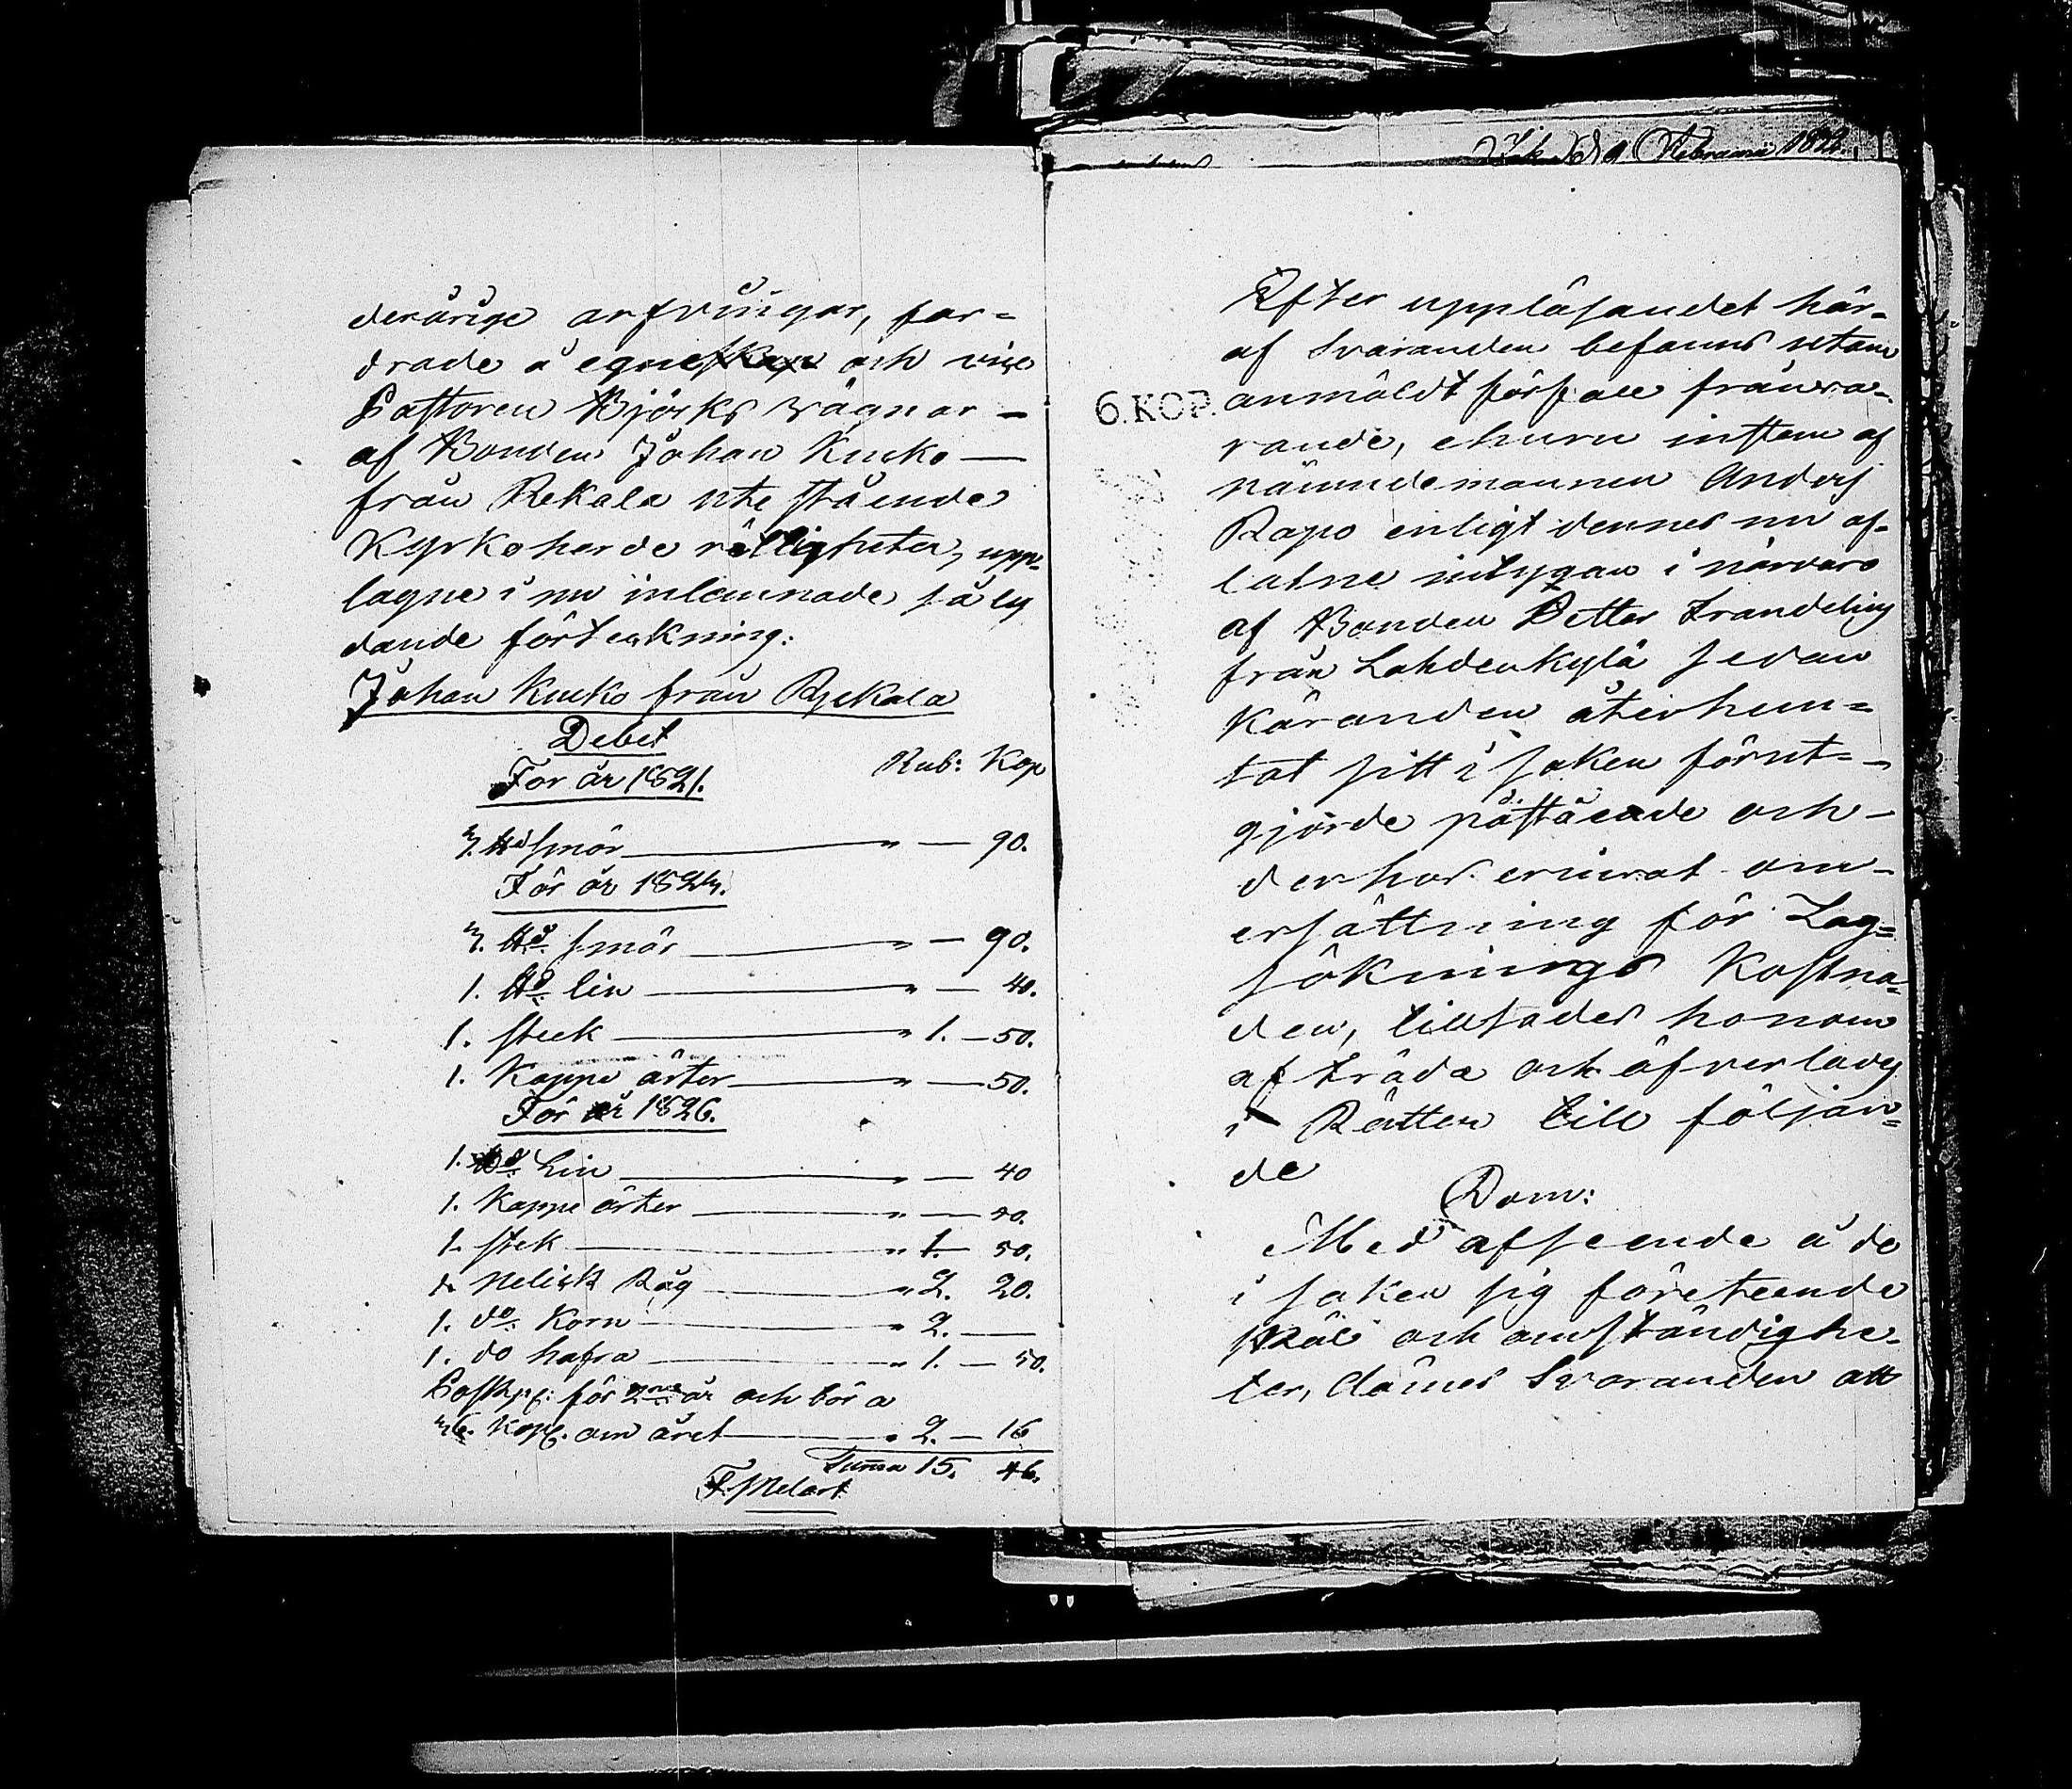 deråriga arfvingar, for-
drade å egne och vice
Pastoren Björks vägnar -
af Bonden Johan Kucko
från Rekala utestående
Kyrkoherde rättigheter, upp-
tagne i nu inlemnade så ly
dande förtekning:
Johan Kucko från Ryekala
Debet
Rub: Kop
För år 1821.
3. ℔d smör " — 90.
För år 1824.
3. ℔d smör " — 90.
1. ℔d lin " — 40.
1. steek " 1. — 50.
1. Kappe ärter " — 50.
För år 1826.
1. ℔d Lin " — 40
1. Kappe ärter " — 50.
1. stek " 1. — 50.
1. nelick Råg " 2. 20.
1. do Korn " 2. —
1. do hafra " 1. — 50.
för 2ne år och bör a
Kop. om året " 2. — 16
Summa 15. 46.
F. Melart
Februarii
Efter uppläsandet här-
af Svaranden befanns utan
6. KOP.
anmäldt förfall frånva-
rande, ehuru instem af
nämndemannen Anders
Rapo enligt dennes nu af-
latne intygan i närvaro
af Bonden Petter Trandeling
från Lahdenkylä sedan
Käranden återhem-
tat sitt i saken förut-
gjorde påstående och
derhos erinrat om
ersättning för Lag-
söknings Kostna-
den, tillsades honom
afträda och öfverlades
i Rätten till följan-
de
Dom:
Med afseende å de
i saken sig företeende
skäl och omständighe-
ter, dömes Svaranden att